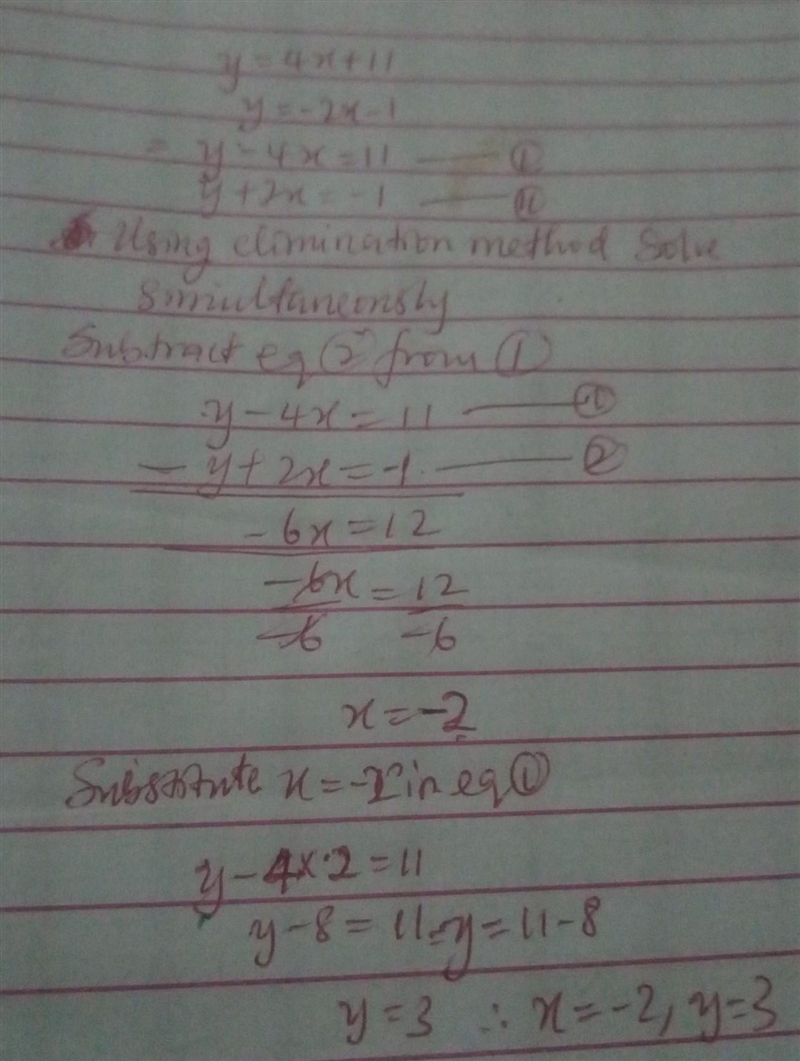 y = 4x + 11
y = -2x - 1
= y - 4x = 11 —— ①
y + 2x = -1 —— ⑪
Using elimination method Solve
Simultaneously
Subtract eq ② from ①
y - 4x = 11 ——
- y + 2x = -1. —— ②
-6x = 12
-6x = 12
-6 -6
x = -2
Substitute x = -2 in eq ①
y - 4x·2 = 11
y - 8 = 11 = y = 11 - 8
y = 3 ∴ x = -2, y = 3